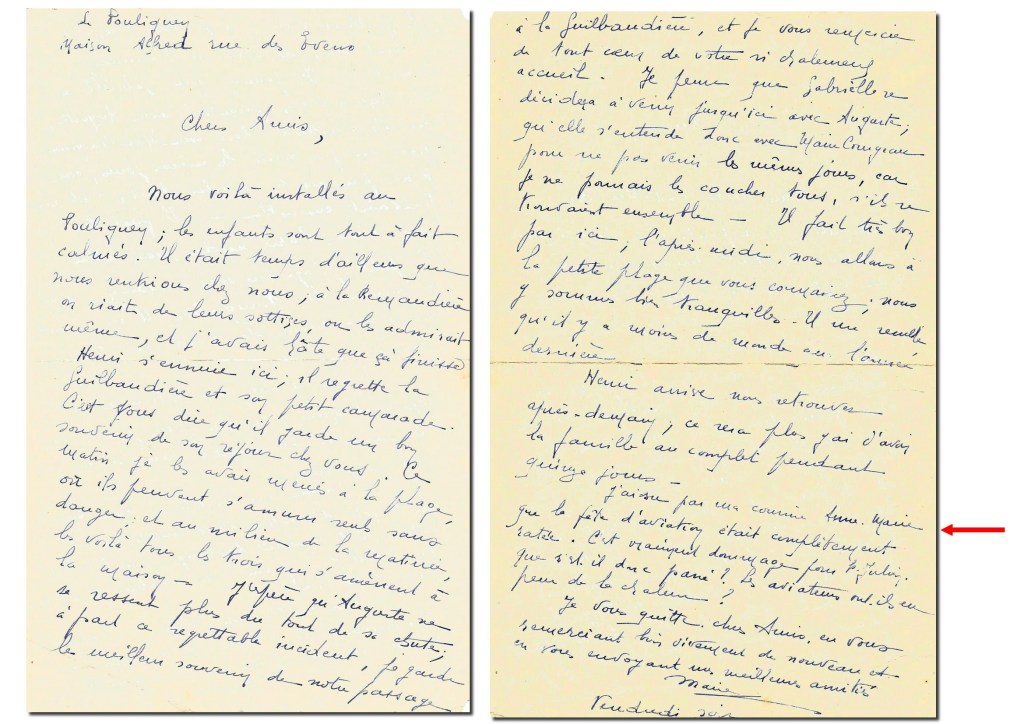 Le Pouliguen
Maison Ached rue des Evens
Chers Amis,
Nous voilà installés au
Pouliguen ; les enfants sont tout à fait
calmés. Il était temps d'ailleurs que
nous rentrions chez nous ; à la Remaudière
on riait de leurs sottises, on les admirait
même, et j'avais hâte que ça finisse
Henri s'ennuie ici ; il regrette la
Guilbaudière et son petit camarade.
C'est vous dire qu'il garde un bon
souvenir de son séjour chez vous. Ce
matin je les avais menés à la plage,
où ils peuvent s'amuser seuls sans
danger ; et au milieu de la matinée,
les voilà tous les trois qui s'amènent à
la maison – J'espère qu'Auguste ne
se ressent plus du tout de sa chute ;
à part ce regrettable incident, je garde
le meilleur souvenir de notre passage
à la Guilbaudière, et je vous remercie
de tout cœur de votre si chaleureux
accueil. Je pense que Gabrielle se
décidera à venir jusqu'ici avec Auguste ;
qu'elle s'entende donc avec
pour ne pas venir les mêmes jours, car
je ne pourrais les coucher tous, s'ils se
trouvaient ensemble – Il fait très bon
par ici ; l'après-midi, nous allons à
la petite plage que vous connaissez ; nous
y sommes bien tranquilles. Il me semble
qu'il y a moins de monde que l'année
dernière
Henri arrive nous retrouver
après-demain ; ce sera plus gai d'avoir
la famille au complet pendant
quinze jours –
J'ai su par ma cousine Anne-Marie
que la fête d'aviation était complètement
ratée. C'est vraiment dommage pour St Julien.
que s'est-il donc passé ? Les aviateurs ont-ils eu
peur de la chaleur ?
Je vous quitte, chers Amis, en vous
remerciant bien vivement de nouveau et
en vous envoyant nos meilleures amitiés
Marie
Vendredi soir